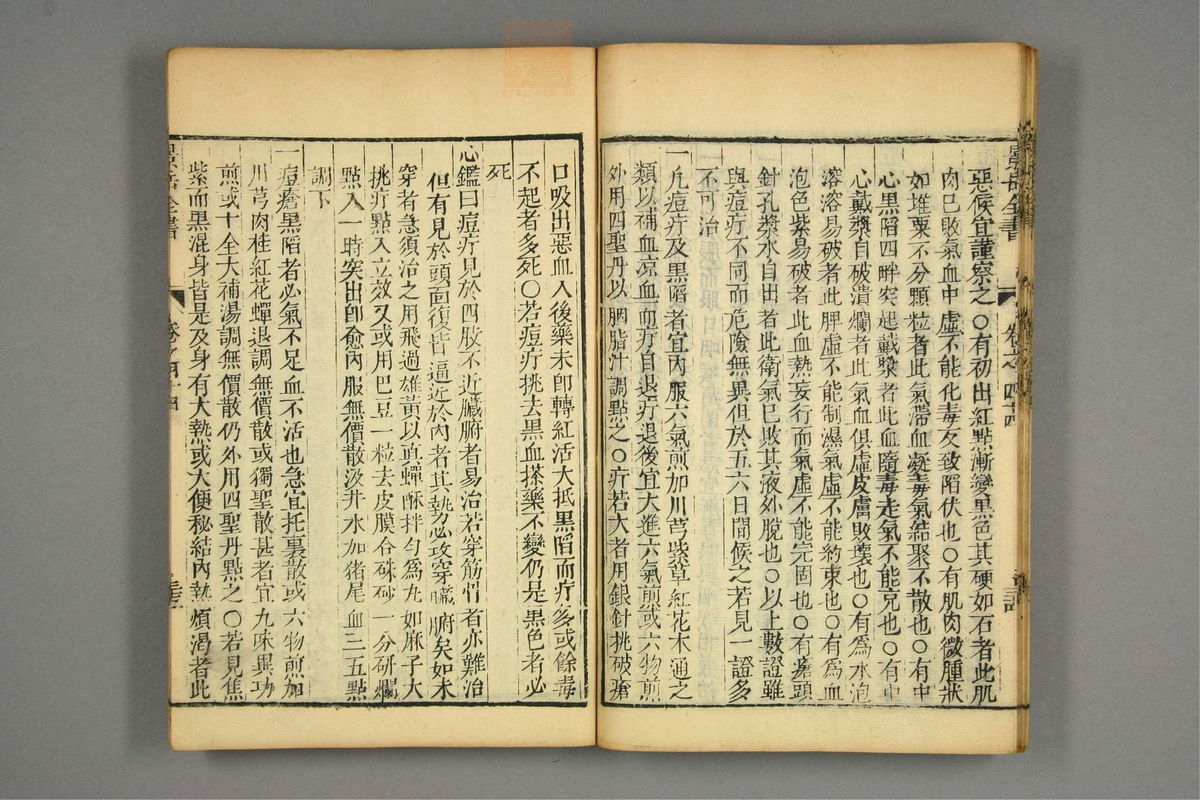 景岳全書
卷之四十四
惡候宜謹察之○有初出紅點漸變黑色其硬如石者此肌
肉已敗氣血中虛不能化毒反致陷伏也○有肌肉微腫狀
如堆粟不分顆粒者此氣滯血凝毒氣結聚不散也○有中
心黑陷四畔突起戴漿者此血隨毒走氣不能充也○有中
心戴漿自破潰爛者此氣血俱虛皮膚敗壞也○有為水泡
溶溶易破者此脾虛不能制濕氣虛不能約束也○有為血
泡色紫易破者此血熱妄行而氣虛不能完固也○有瘡頭
針孔漿水自出者此衛氣已敗其液外脫也○以上數證雖
與痘疔不同而危險無異但於五六日間候之若見一證多
不可治
一凡痘疔及黑陷者宜內服六氣煎加川芎紫草紅花木通之
類以補血凉血血疔自退疔退後宜大進六氣煎或六物煎
外用四聖丹以胭脂汁調點之○疔若大者用銀針挑破瘡
口吸出惡血入後藥未卽轉紅活大抵黑陷而疔多或餘毒
不起者多死○若痘疔挑去黑血搽藥不變仍是黑色者必
死
心鑑曰痘疔見於四肢不近臟腑者易治若穿筋骨者亦難治
但有見於頭面復皆逼近於內者其勢必攻穿臟腑矣如未
穿者急須治之用飛過雄黃以真蟬酥拌勻為丸如麻子大
挑疔點入立效又或用巴豆一粒去皮膜合硃砂一分研爛
點入一時突出卽愈內服無價散汲井水加猪尾血三五點
調下
一痘瘡黑陷者必氣不足血不活也急宜托裏散或六物煎加
川芎肉桂紅花蟬退調無價散或獨聖散甚者宜九味異功
煎或十全大補湯調無價散仍外用四聖丹點之○若見焦
紫而黑混身皆是及身有大熱或大便秘結內熱煩渴者此
景岳全書
卷之四十四